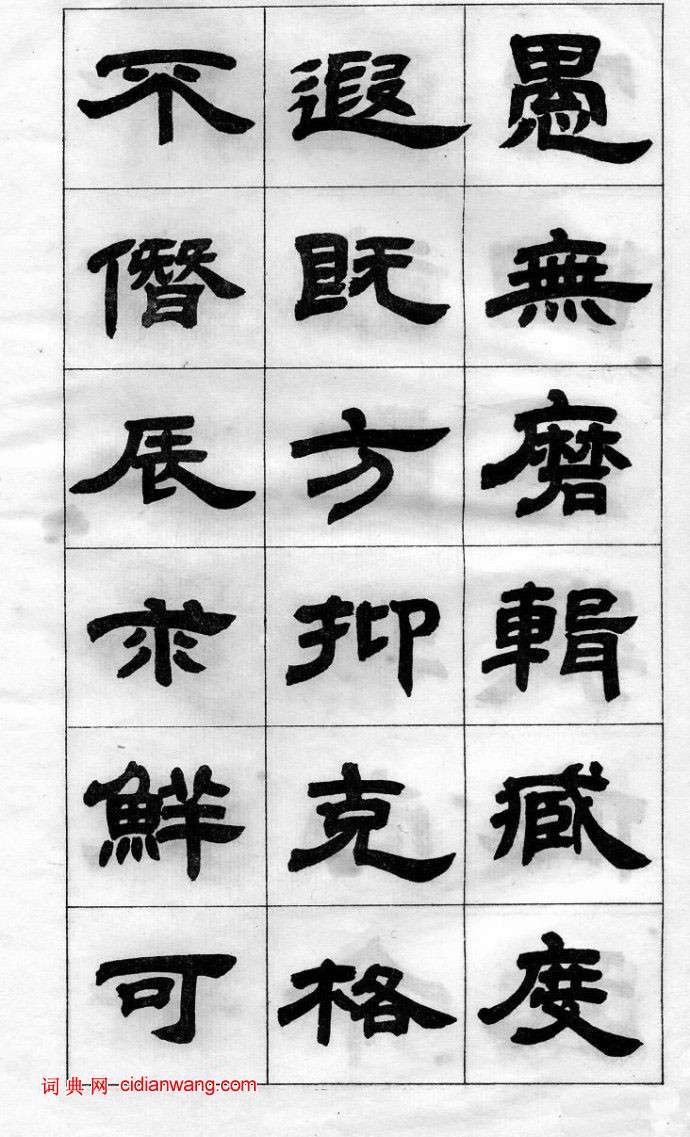 愚無磨輯臧度
遐既方抑克格
不僭辰求鮮可
词典网-cidianwang.com